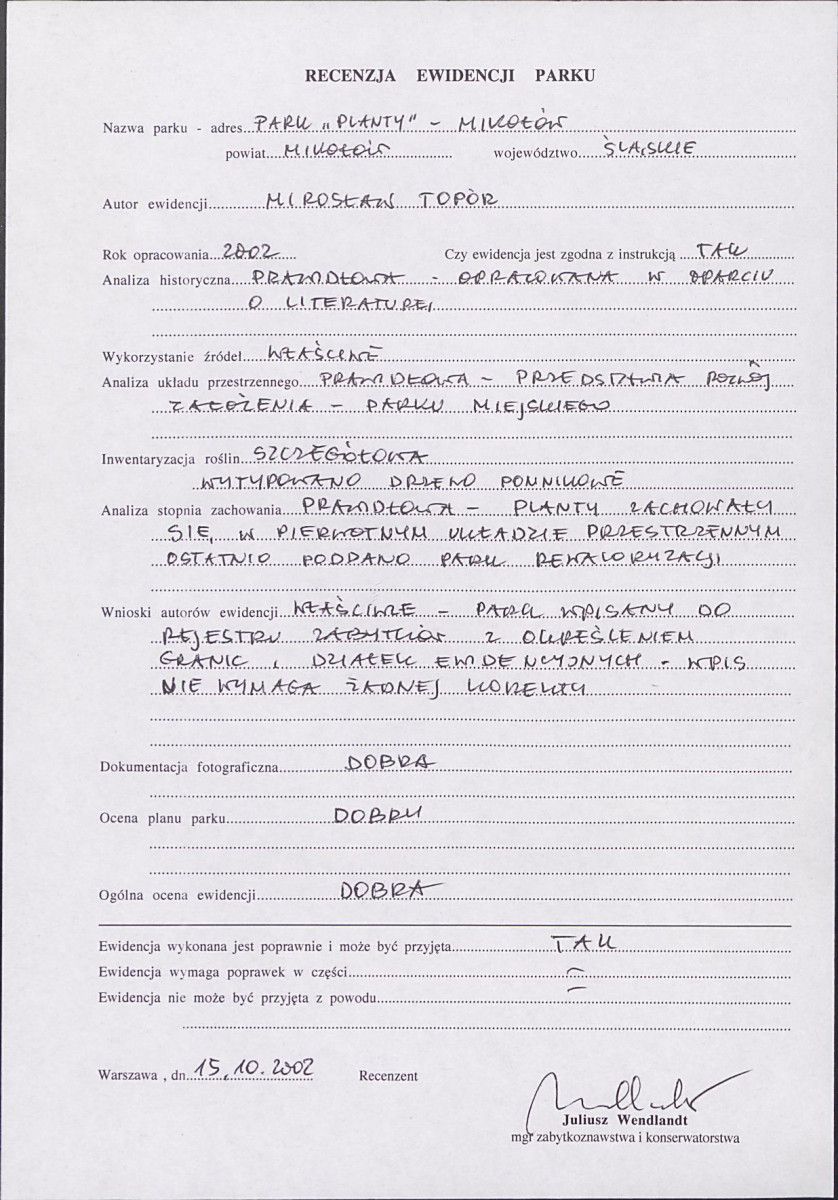 RECENZJA EWIDENCJI PARKU
Nazwa parku - adres PARK „PLANTY" - MIKOŁÓW
powiat MIKOŁÓW województwo ŚLĄSKIE
Autor ewidencji MIROSŁAW TOPÓR
Rok opracowania 2002 Czy ewidencja jest zgodna z instrukcją TAK
Analiza historyczna PRAWIDŁOWA - OPRACOWANA W OPARCIU
O LITERATURĘ
Wykorzystanie źródeł WŁAŚCIWE
Analiza układu przestrzennego PRAWIDŁOWA - PRZEDSTAWIA ROZWÓJ
ZAŁOŻENIA - PARKU MIEJSKIEGO
Inwentaryzacja roślin SZCZEGÓŁOWA
WYTYPOWANO DRZEWO POMNIKOWE
Analiza stopnia zachowania PRAWIDŁOWA - PLANTY ZACHOWAŁY
SIĘ W PIERWOTNYM UKŁADZIE PRZESTRZENNYM
OSTATNIO PODDANO PARK REWALORYZACJI
Wnioski autorów ewidencji WŁAŚCIWE - PARK WPISANY DO
REJESTRU ZABYTKÓW Z OKREŚLENIEM
GRANIC I DZIAŁEK EWIDENCYJNYCH - WPIS
NIE WYMAGA ŻADNEJ KOREKTY
Dokumentacja fotograficzna DOBRA
Ocena planu parku DOBRY
Ogólna ocena ewidencji DOBRA
Ewidencja wykonana jest poprawnie i może być przyjęta TAK
Ewidencja wymaga poprawek w części -
Ewidencja nie może być przyjęta z powodu -
Warszawa , dn. 15.10.2002 Recenzent
Juliusz Wendlandt
mgr zabytkoznawstwa i konserwatorstwa